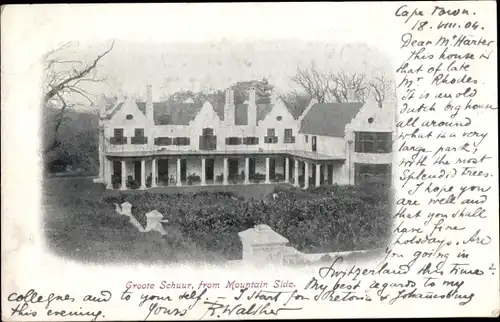 Cape Town.
18. VIII. 04.
Dear Mr Harter
This house is
that of late
Mr Rhodes.
It is an old
Dutch big house
all around
what is a very
large park,
with the most
splendid trees.
I hope you
are well and
that you shall
have fine
holydays. Are
you going in
Switzerland this time?
My best regards to my
colleagues and to your self. I start for Pretoria & Johannesburg
this evening. Yours F. Walther
Groote Schuur, from Mountain Side.